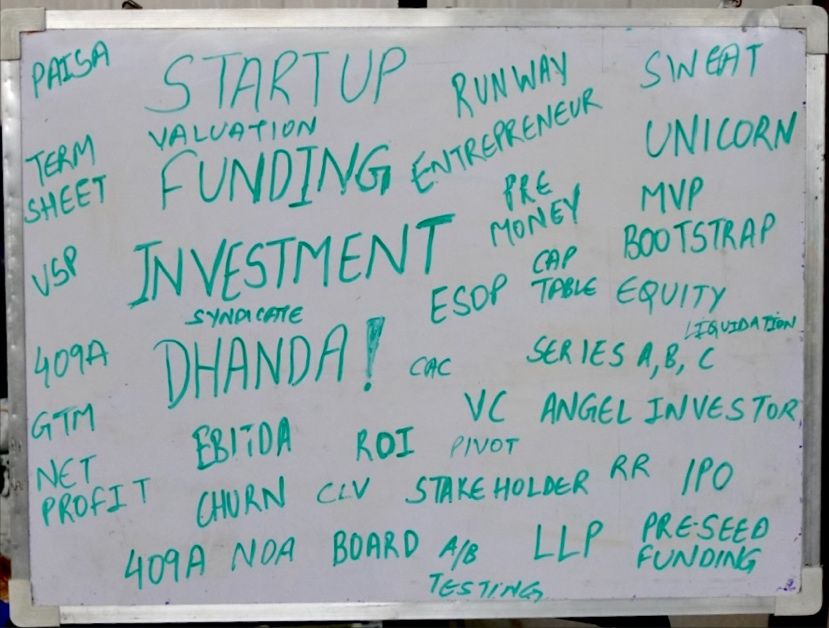 PAISA
STARTUP
RUNWAY
SWEAT
VALUATION
ENTREPRENEUR
UNICORN
TERM
SHEET
FUNDING
PRE
MONEY
MVP
USP
INVESTMENT
CAP
TABLE
BOOTSTRAP
SYNDICATE
ESOP
EQUITY
LIQUIDATION
409A
DHANDA!
CAC
SERIES A, B, C
GTM
VC
ANGEL INVESTOR
EBITDA
ROI
PIVOT
NET
PROFIT
CHURN
CLV
STAKEHOLDER
RR
IPO
409A
NDA
BOARD
A/B
TESTING
LLP
PRE-SEED
FUNDING